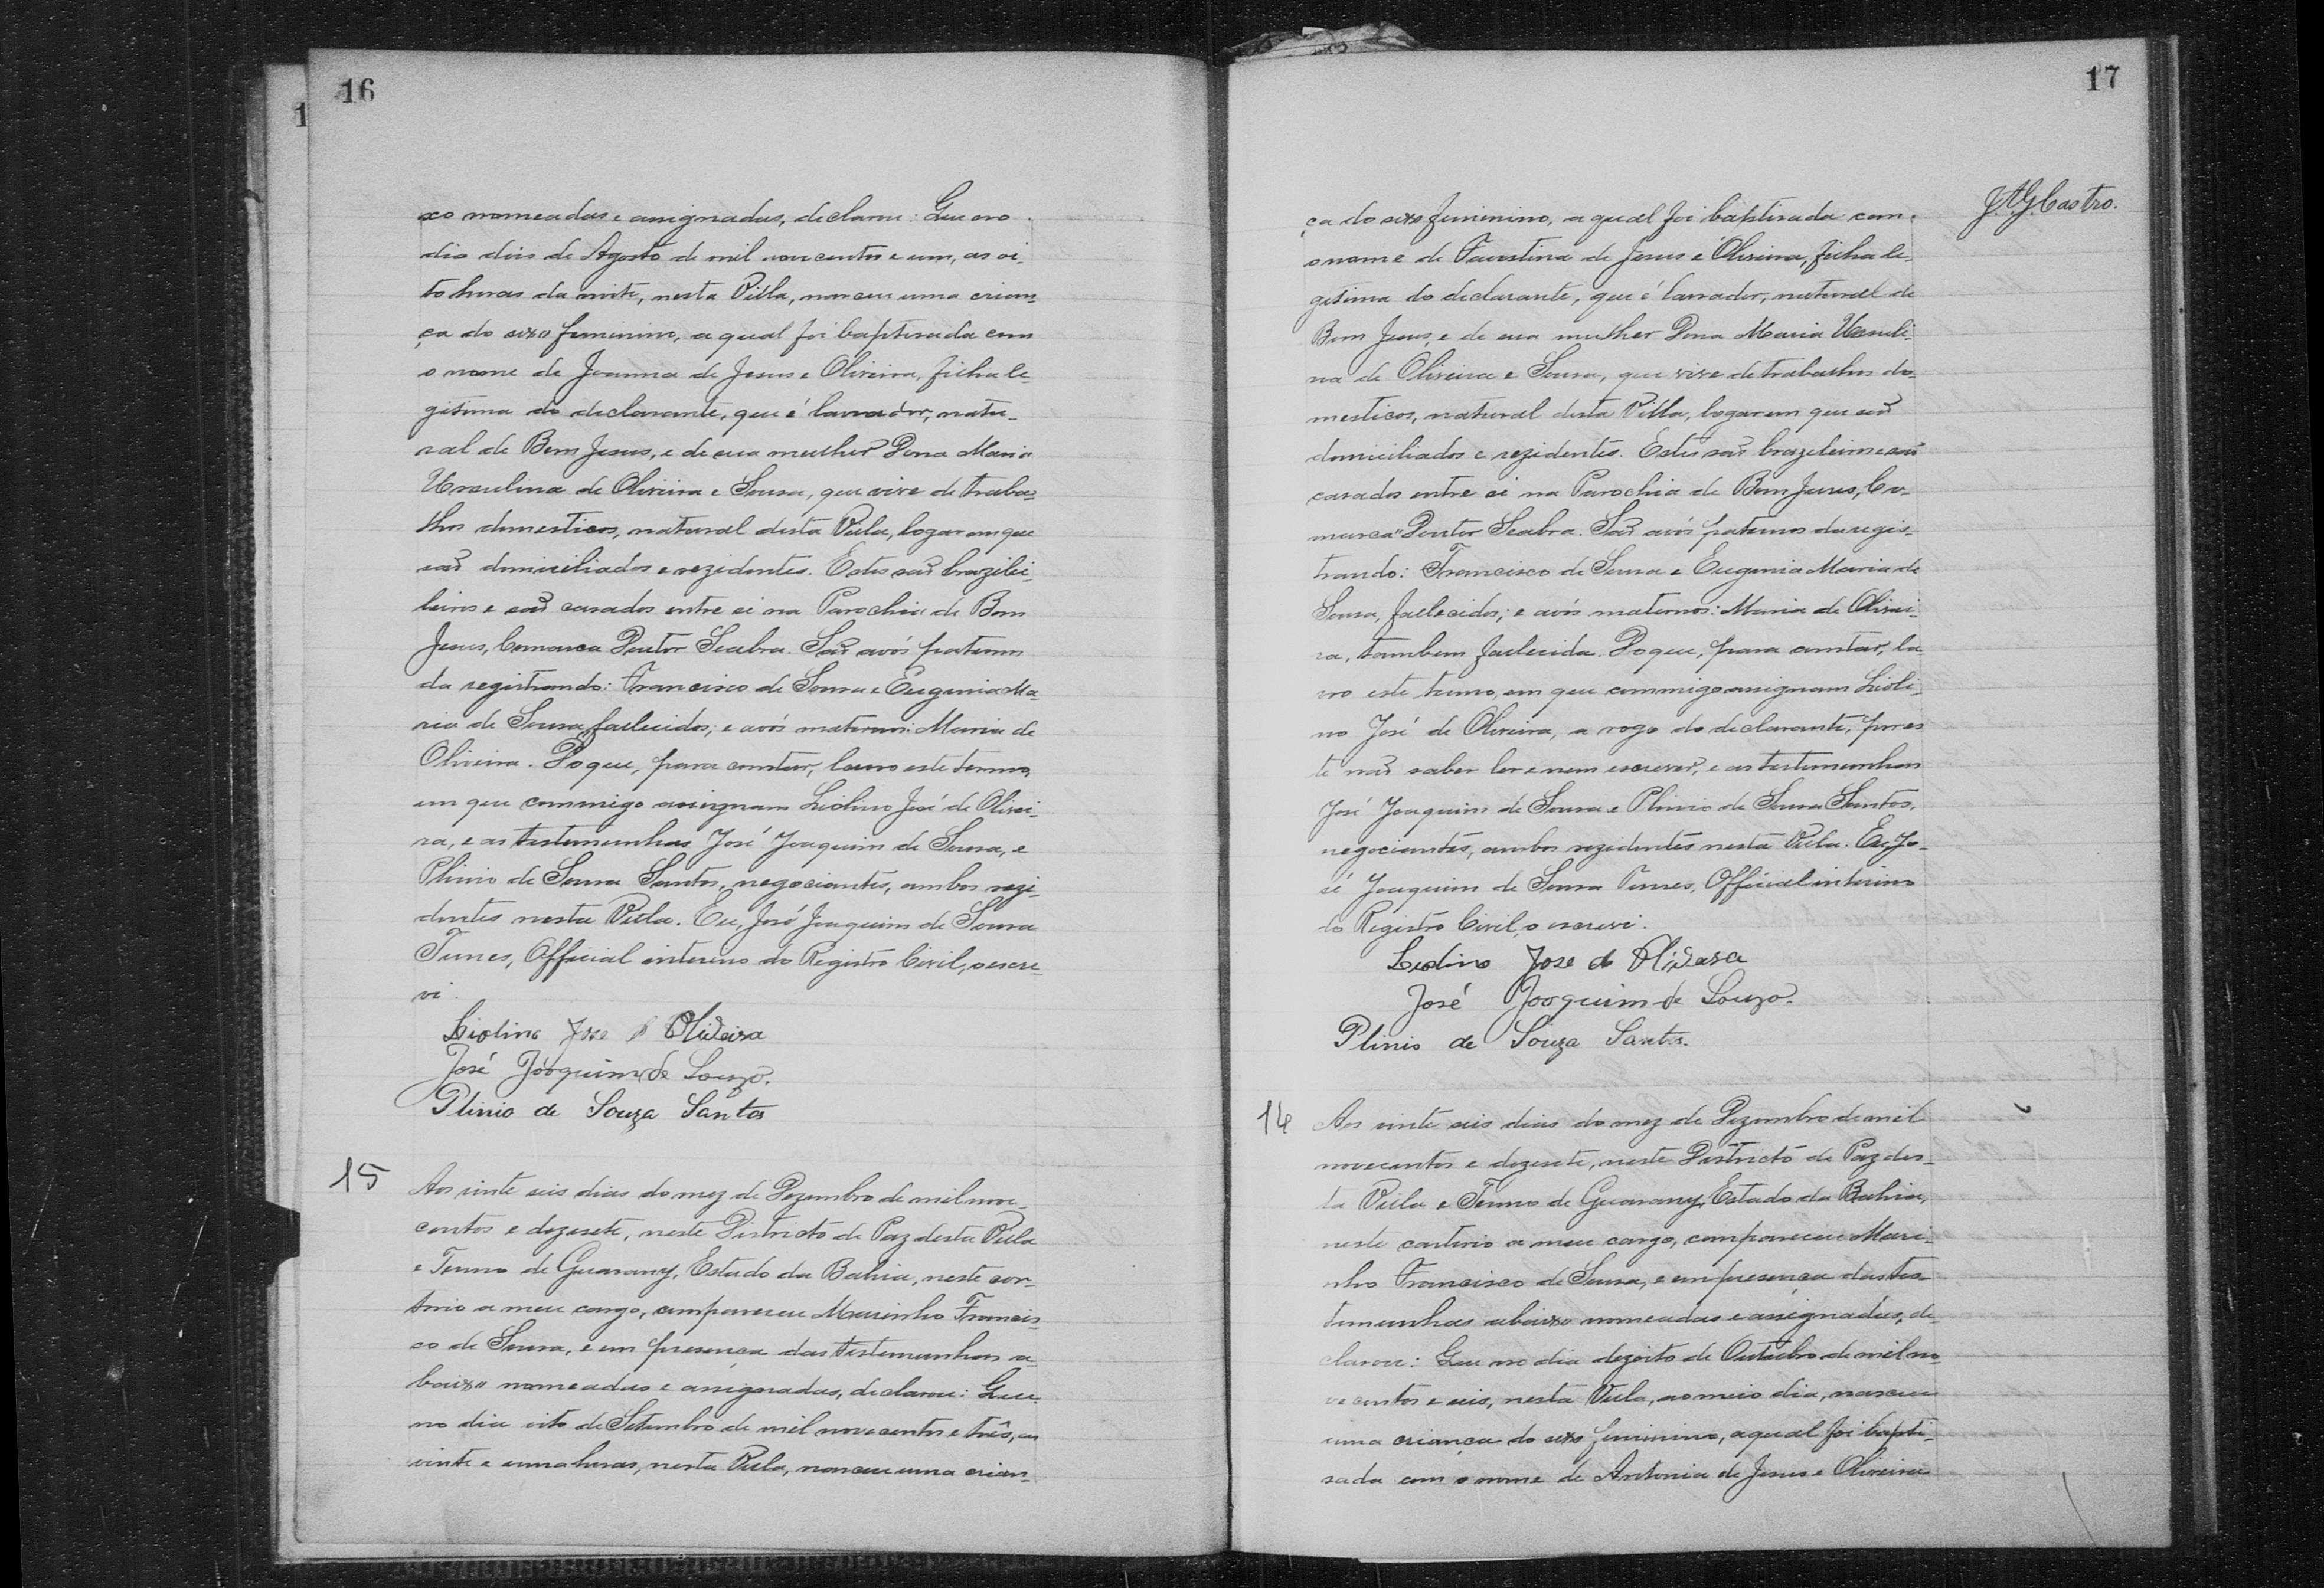 16
xo nomeadas e assignadas, declarou: Que no
dia dois de Agosto de mil novecentos e um, as oi-
to horas da noite, nesta Villa, nasceu uma crian-
ça do sexo feminino, a qual foi baptisada com
o nome de Joanna de Jesus e Oliveira, filha le-
gitima do declarante, que é lavrador, natu-
ral de Bom Jesus, e de sua mulher Dona Maria
Ursulina de Oliveira e Sousa, que vive de traba-
lhos domesticos, natural desta Villa, logar em que
são domiciliados e rezidentes. Estes são brazilei-
leiros e são casados entre si na Parochia de Bom
Jesus, Comarca Doutor Seabra. São avós paternos
da registrando: Francisco de Sousa e Eugenia Ma-
ria de Sousa, fallecidos; e avós maternos: Maria de
Oliveira. Do que, para constar, lavro este termo,
em que commigo assignam Liolino José de Olivei-
ra, e as testemunhas José Joaquim de Sousa, e
Plinio de Sousa Santos, negociantes, ambos rezi-
dentes nesta Villa. Eu, José Joaquim de Sousa
Tunes, Official interino do Registro Civil, o escre-
vi.
Liolino Jose d Oliveira
José Joaquim de Souza.
Plinio de Souza Santos
15
Aos vinte seis dias do mez de Dezembro de mil nove-
centos e dezesete, neste Districto de Paz desta Villa
e Termo de Guarany, Estado da Bahia, neste car-
torio a meu cargo, compareceu Marinho Francis-
co de Sousa, e em presença das testemunhas a-
baixo nomeadas e assignadas, declarou: Que
no dia oito de Setembro de mil novecentos e três, as
vinte e uma horas, nesta Villa, nasceu uma crian-
17
J.A.G. Castro.
ça do sexo feminino, a qual foi baptisada com
o nome de Faustina de Jesus e Oliveira, filha le-
gitima do declarante, que é lavrador, natural de
Bom Jesus, e de sua mulher Dona Maria Ursuli-
na de Oliveira e Sousa, que vive de trabalhos do-
mesticos, natural desta Villa, logar em que são
domiciliados e rezidentes. Estes são brazileiros e são
casados entre si na Parochia de Bom Jesus, Co-
marca "Doutor Seabra. São avós paternos da regis-
trando: Francisco de Sousa e Eugenia Maria de
Sousa, fallecidos; e avós maternos: Maria de Olivei-
ra, tambem fallecida. Do que, para constar, la-
vro este termo, em que commigo assignam Lioli-
no José de Oliveira, a rogo do declarante, por es
te não saber ler e nem escrever, e as testemunhas
José Joaquim de Sousa e Plinio de Sousa Santos,
negociantes, ambos rezidentes nesta Villa. Eu, Jo-
sé Joaquim de Sousa Tunes, Official interino
do Registro Civil, o escrevi.
Liolino Jose d Oliveira
José Joaquim de Souza.
Plinio de Souza Santos.
14
Aos vinte seis dias do mez de Dezembro de mil
novecentos e dezesete, neste Districto de Paz des-
ta Villa e Termo de Guarany, Estado da Bahia,
neste cartorio a meu cargo, compareceu Mari-
nho Francisco de Sousa, e em presença das tes-
temunhas abaixo nomeadas e assignadas, de-
clarou: Que no dia dezoito de Outubro de mil no-
vecentos e seis, nesta Villa, ao meio dia, nasceu
uma criança do sexo feminino, a qual foi bapti-
sada com o nome de Antonia de Jesus e Oliveira